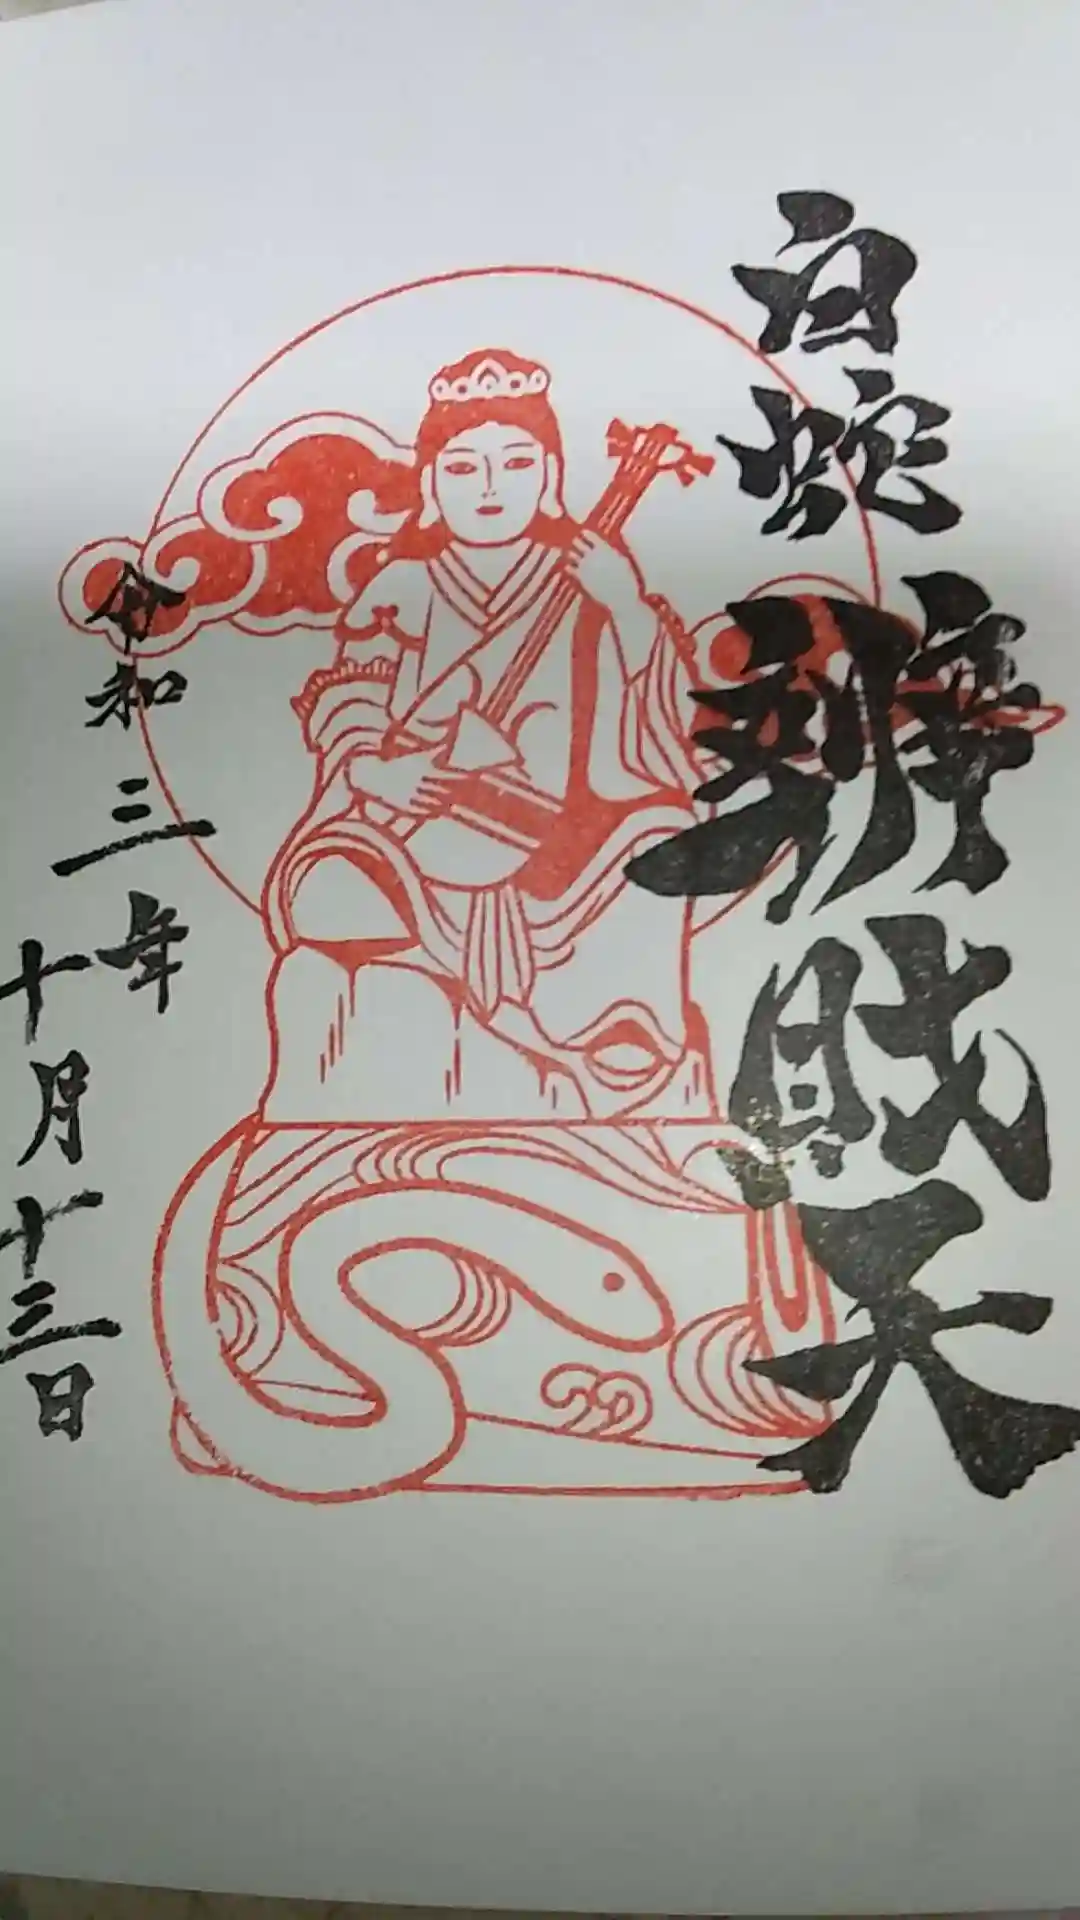 白蛇辨財天
令和三年
十月十三日